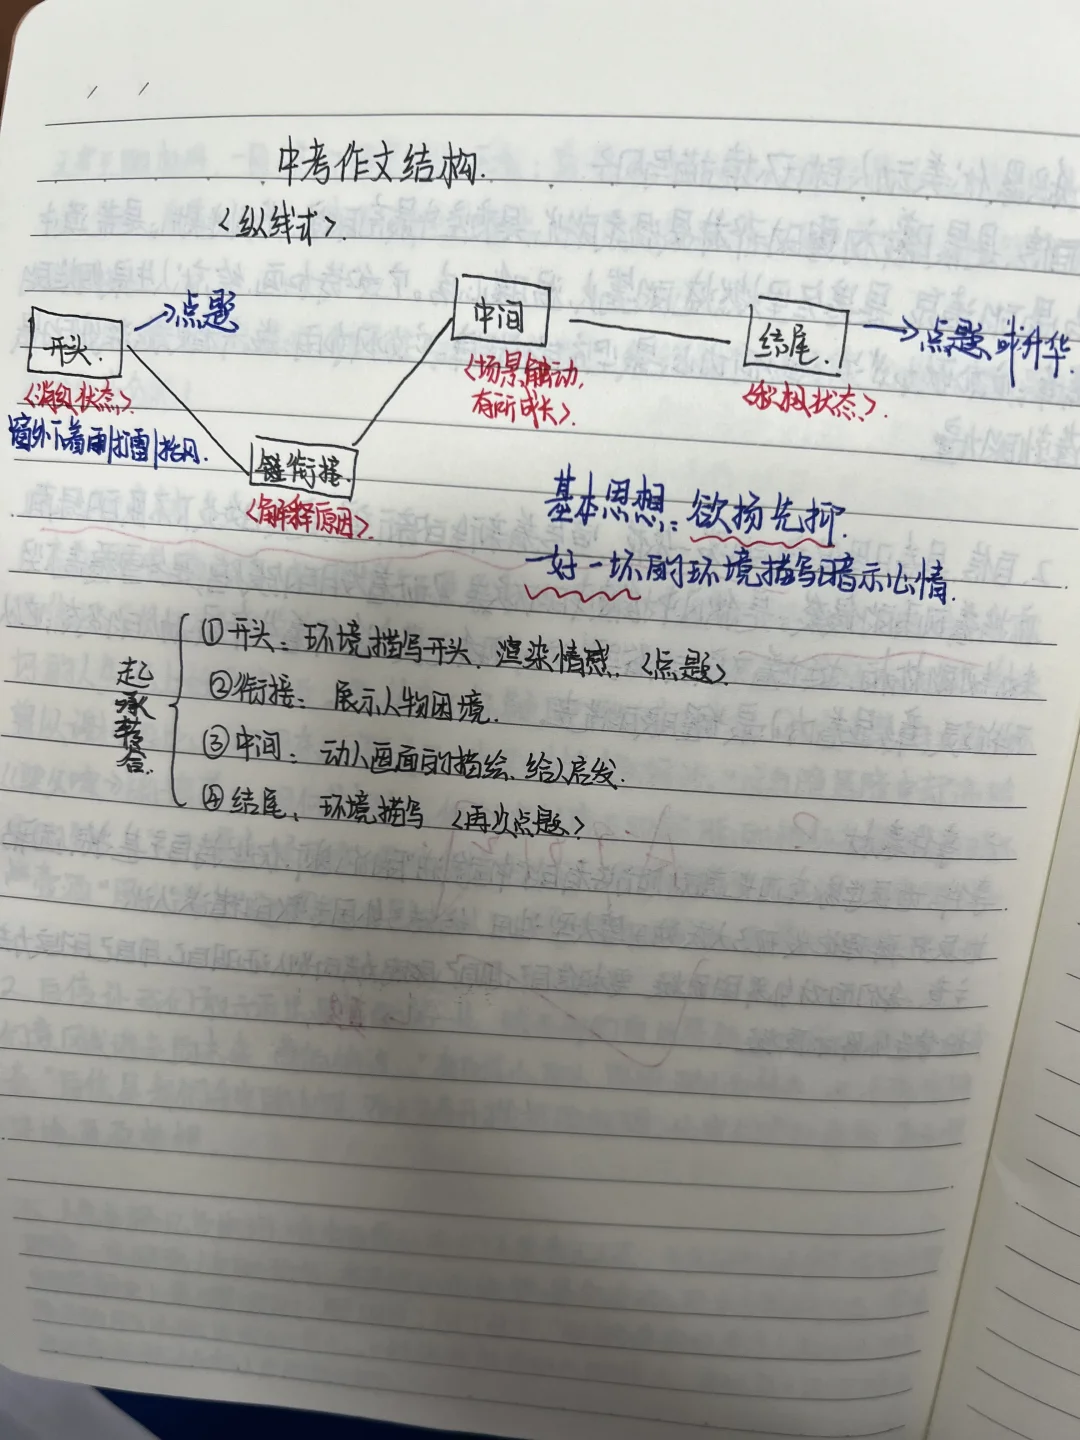 中考作文结构.
<纵线式>.
开头. →点题
<消极状态>
窗外下着雨|打雷|指风.
链衔接.
<解释原因>.
中间
<场景触动,
有所成长>.
结尾. →点题 或升华.
<积极状态>.
基本思想:欲扬先抑.
一好一坏的环境描写暗示心情.
起承转合.
①开头:环境描写开头.渲染情感.<点题>
②衔接:展示人物困境.
③中间:动人画面的描绘.给人启发.
④结尾、环境描写<再次点题>